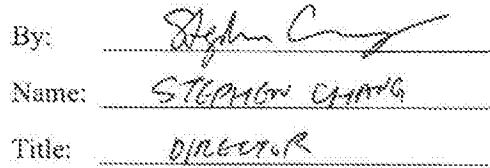 By: Stephen Chang
Name: STEPHEN CHANG
Title: DIRECTOR